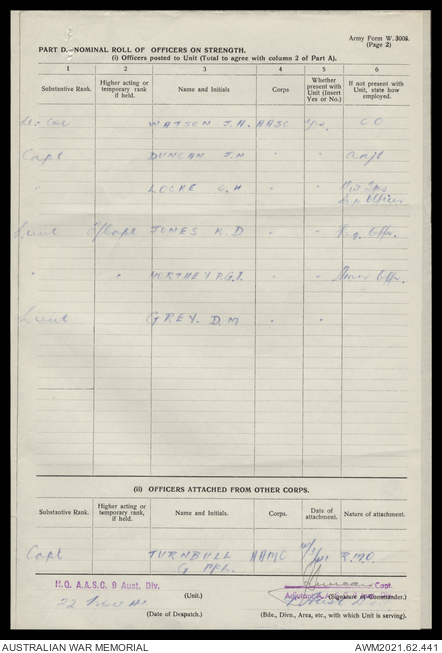 Army Form W. 3008.
(Page 2)
PART D.—NOMINAL ROLL OF OFFICERS ON STRENGTH.
(i) Officers posted to Unit (Total to agree with column 2 of Part A).
1 2 3 4 5 6
Substantive Rank. Higher acting or temporary rank if held. Name and Initials Corps Whether present with Unit (Insert Yes or No.) If not present with Unit, state how employed.
Lt-Col WATSON J.A. AASC Yes CO
Capt DUNCAN J.N " " Adjt
" LOCKE G.H " "
Officer
Lieut Capt JONES K.D " " Offr.
" " NORTHEY P.G.J. " " Offr.
Lieut GREY. D.M " "
(ii) OFFICERS ATTACHED FROM OTHER CORPS.
Substantive Rank. Higher acting or temporary rank, if held. Name and Initials. Corps. Date of attachment. Nature of attachment.
Capt TURNBULL AAMC R.M.O
H.Q. A.A.S.C. 9 Aust. Div. (Unit.) Duncan Capt.
(Signature of Commander.)
22 Nov 41
(Date of Despatch.) (Bde., Divn., Area, etc., with which Unit is serving).
AUSTRALIAN WAR MEMORIAL AWM2021.62.441